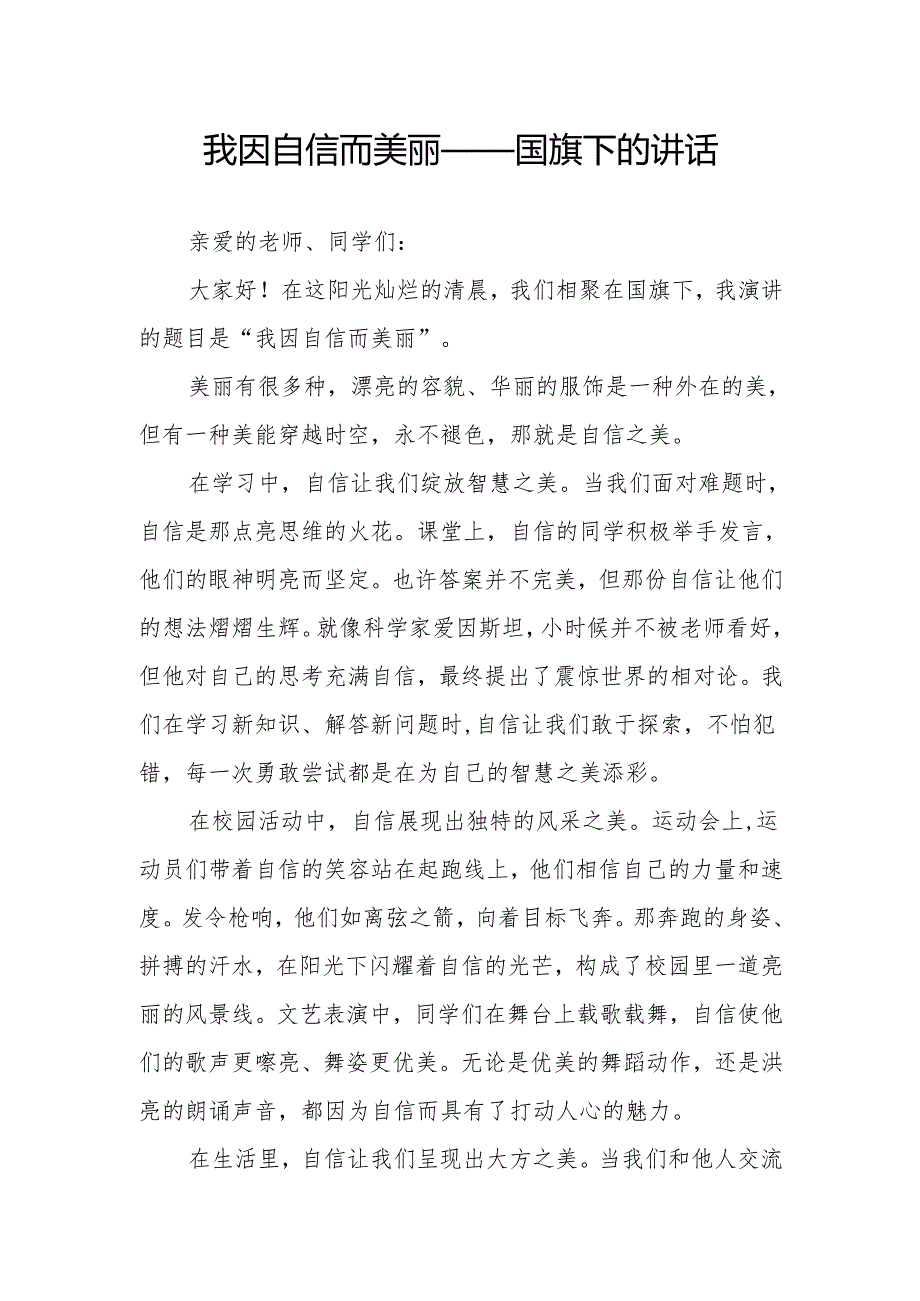 我因自信而美丽——国旗下的讲话
亲爱的老师、同学们：
大家好！在这阳光灿烂的清晨，我们相聚在国旗下，我演讲
的题目是“我因自信而美丽”。
美丽有很多种，漂亮的容貌、华丽的服饰是一种外在的美，
但有一种美能穿越时空，永不褪色，那就是自信之美。
在学习中，自信让我们绽放智慧之美。当我们面对难题时，
自信是那点亮思维的火花。课堂上，自信的同学积极举手发言，
他们的眼神明亮而坚定。也许答案并不完美，但那份自信让他们
的想法熠熠生辉。就像科学家爱因斯坦,小时候并不被老师看好，
但他对自己的思考充满自信，最终提出了震惊世界的相对论。我
们在学习新知识、解答新问题时,自信让我们敢于探索，不怕犯
错，每一次勇敢尝试都是在为自己的智慧之美添彩。
在校园活动中，自信展现出独特的风采之美。运动会上,运
动员们带着自信的笑容站在起跑线上，他们相信自己的力量和速
度。发令枪响，他们如离弦之箭，向着目标飞奔。那奔跑的身姿、
拼搏的汗水，在阳光下闪耀着自信的光芒，构成了校园里一道亮
丽的风景线。文艺表演中，同学们在舞台上载歌载舞，自信使他
们的歌声更嘹亮、舞姿更优美。无论是优美的舞蹈动作，还是洪
亮的朗诵声音，都因为自信而具有了打动人心的魅力。
在生活里，自信让我们呈现出大方之美。当我们和他人交流